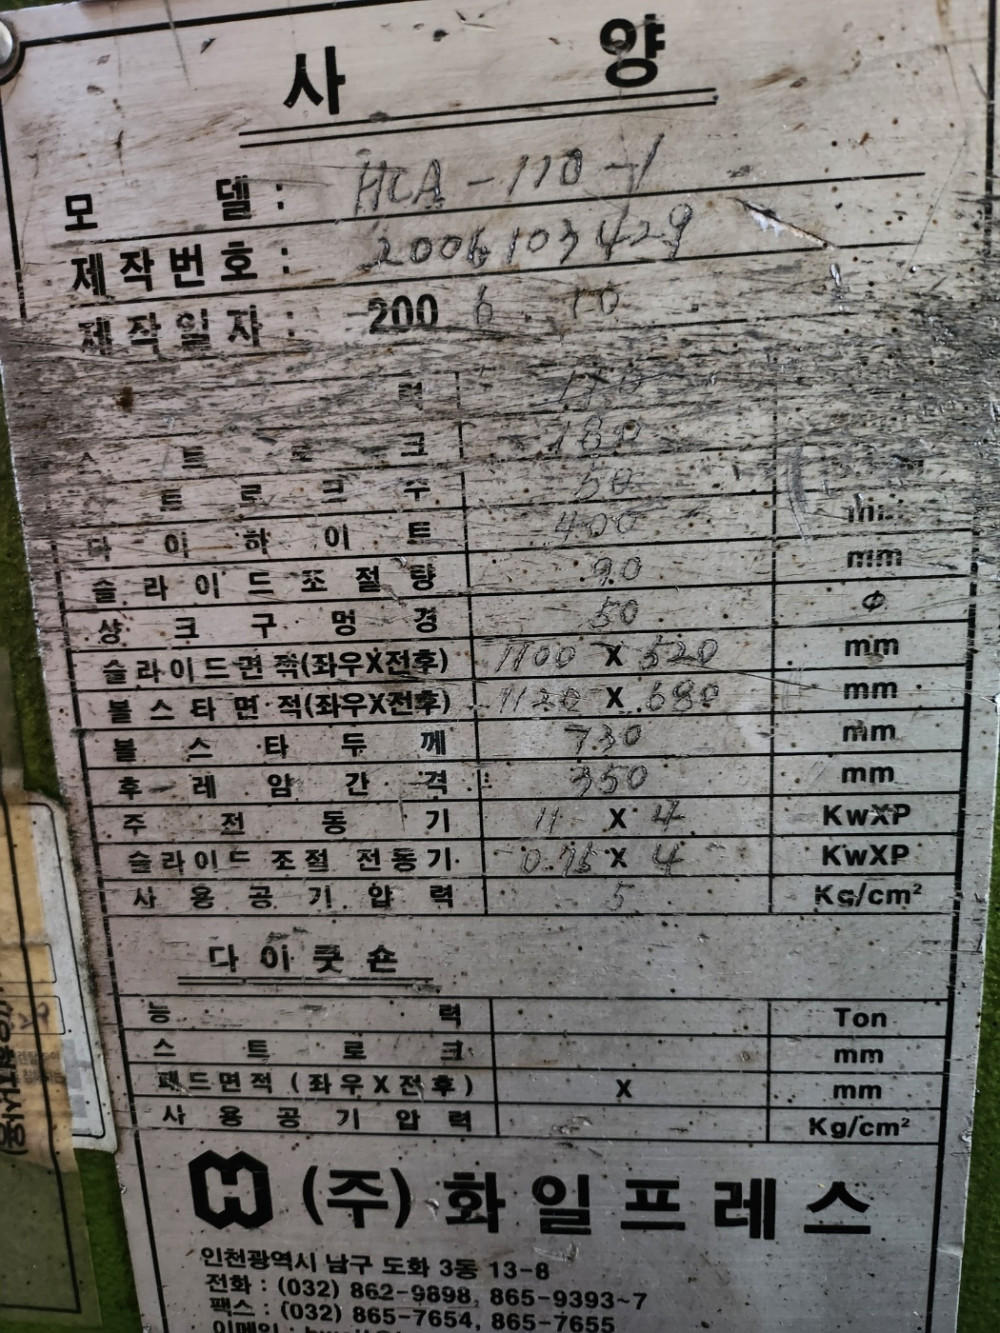 사 양
모 델 : HCA-110-1
제작번호 : 2006103429
제작일자 : 2006. 10
력
스 트 로 크 180
트 로 크 수 50
다 이 하 이 트 400
슬 라 이 드 조 절 량 90 mm
샹 크 구 멍 경 50 ϕ
슬라이드면적(좌우X전후) 1100 X 520 mm
볼스타면적(좌우X전후) 1120 X 680 mm
볼 스 타 두 께 mm
후 레 암 간 격 350 mm
주 전 동 기 11 X 4 KwXP
슬라이드 조절 전동기 0.75 X 4 KwXP
사 용 공 기 압 력 5 Kg/cm²
다이쿳숀
능 력 Ton
스 트 로 크 mm
패드면적 (좌우X전후) X mm
사 용 공 기 압 력 Kg/cm²
(주) 화일프레스
인천광역시 남구 도화 3동 13-8
전화 : (032) 862-9898, 865-9393~7
팩스 : (032) 865-7654, 865-7655
이메일 :